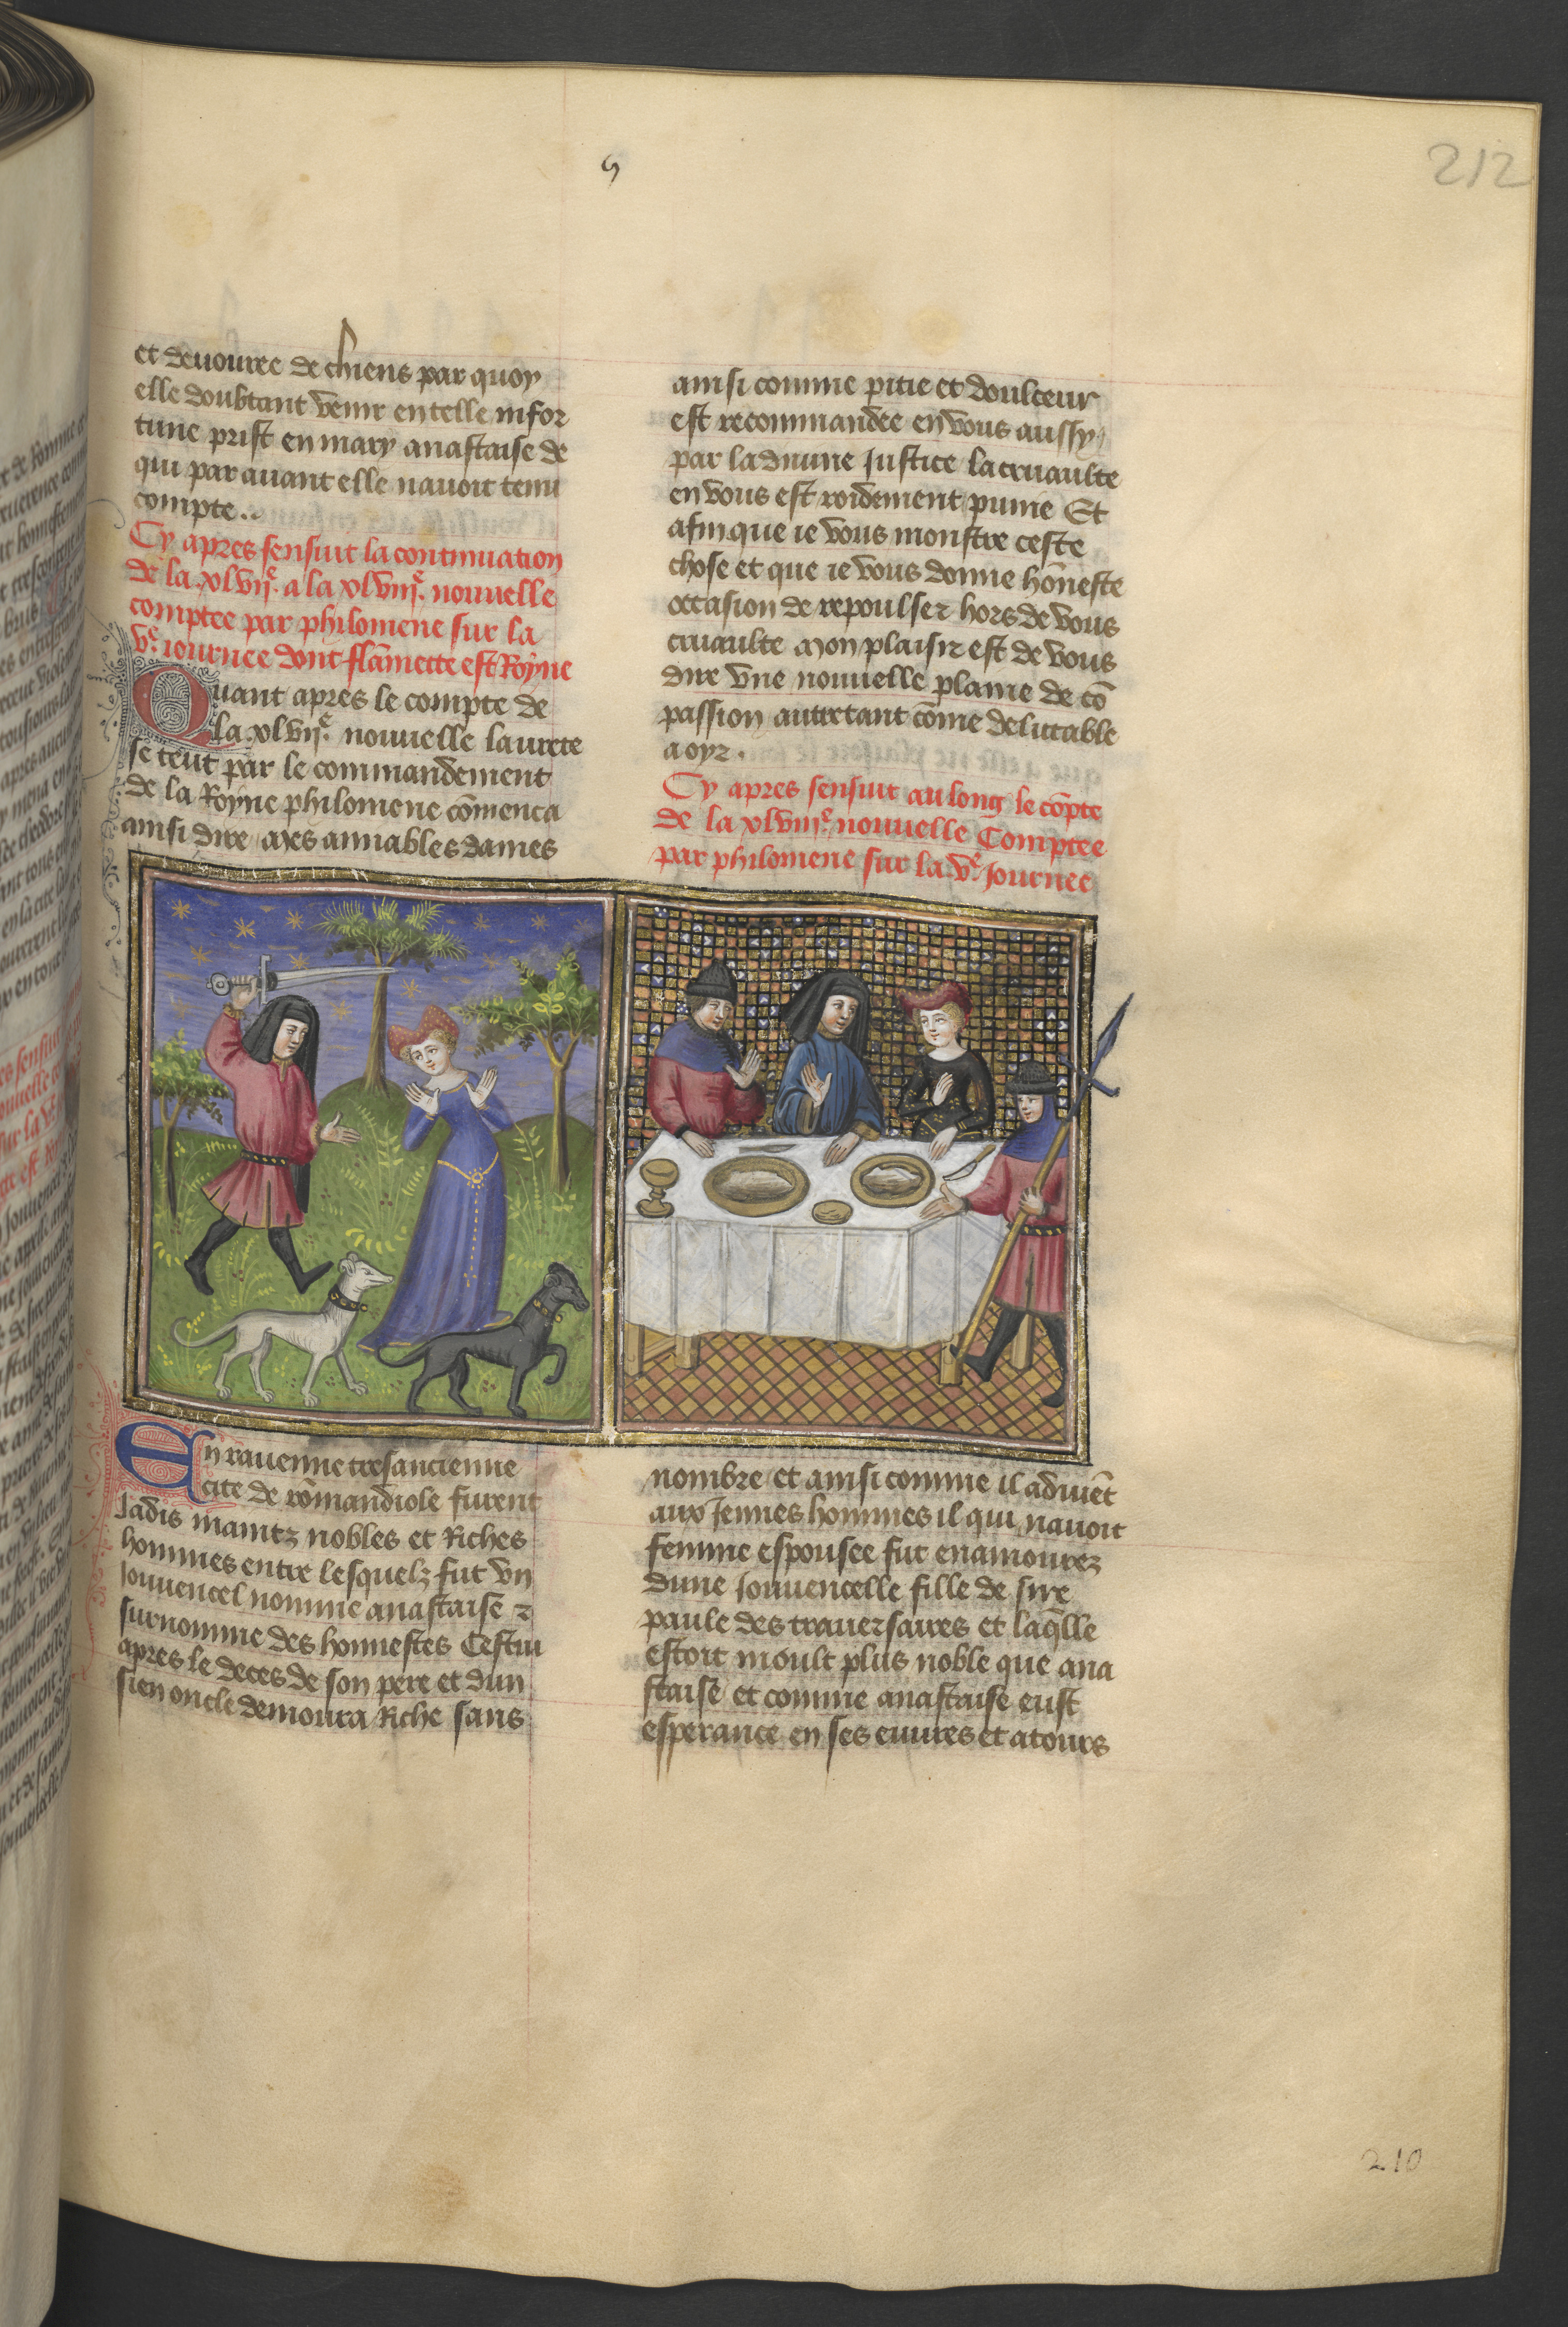 212
et deuouree de chiens par quoy
elle doubtant venir en telle infor
tune prist en mary anastaise de
qui par auant elle nauoit tenu
compte..
Cy apres sensuit la continuation
de la xlvijᵉ. a la xlviijᵉ. nouuelle
comptee par philomene sur la
vᵉ. iournee dont flāmette est Royne
Quant apres le compte de
la xlvijᵉ nouuelle laurete
se teut par le commandement
de la Royne philomene cōmenca
ainsi dire mes amiables dames
ainsi comme pitie et doulceur
est recommandee en vous aussy
par la diuine Justice la cruaulte
en vous est roidement punie Et
afin que ie vous monstre ceste
chose et que ie vous donne hōneste
occasion de repoulser hors de vous
cruaulte Mon plaisir est de vous
dire vne nouuelle plaine de cō
passion autretant cōme delictable
a oyr.
Cy apres sensuit au long le cōpte
de la xlviijᵉ. nouuelle Comptee
par philomene sur la vᵉ. Journee
En rauenne tresancienne
cite de rōmandiole furent
Jadis maintz nobles et Riches
hommes entre lesquelz fut vn
Jouuencel nomme anastaise ⁊
surnomme des honnestes Cestui
apres le deces de son pere et dun
sien oncle demoura Riche sans
nombre et ainsi comme il aduiēt
aux Jennes hommes il qui nauoit
femme espousee fut enamourez
dune Jouuencelle fille de sire
paule des trauersaires et laq̄lle
estoit moult plus noble que ana
staise et comme anastaise eust
esperance en ses euures et atours
210